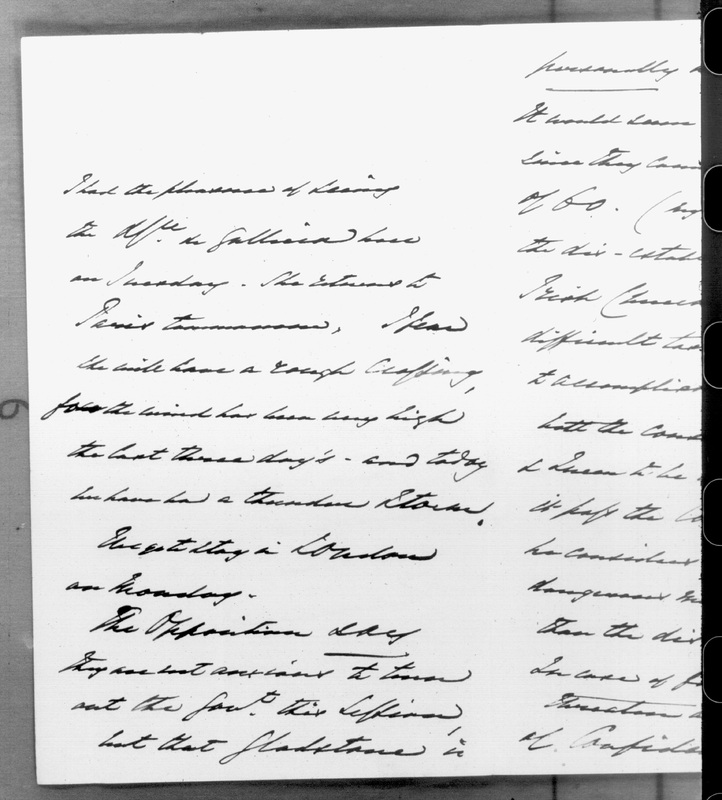 I had the pleasure of seeing
the Dsse. de Galliera here
on Tuesday. She returns to
Paris tommorrow, I fear
she will have a rough Crossing,
for the wind has been very high
the last three day's - and today
we have had a thunder Storm.
We go to stay in London
on Monday.
The Opposition say
they are not anxious to turn
out the Govt. this Session,
but that Gladstone is
personally
It would seem
since they
of 60. (
the dis-estab
Irish Church
difficult
to accomplish
both the
& Queen to be
is pass the
he considers
dangerous
than the dis
In case of
threaten a
of Confiden